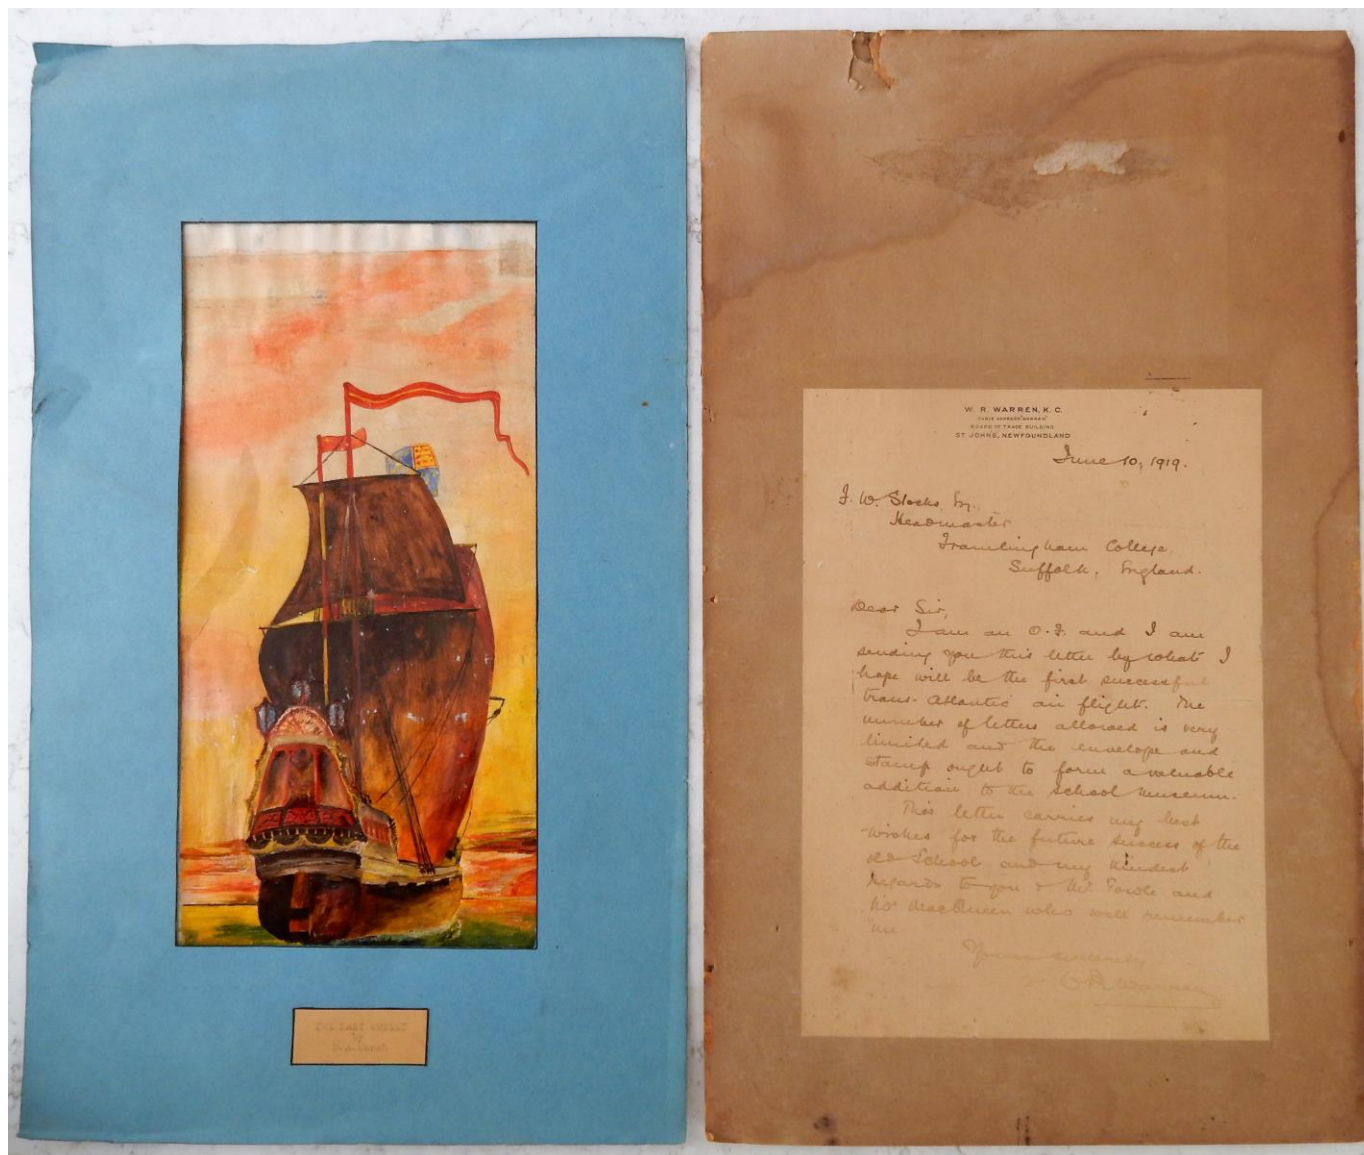 THE LAST
by
W. R. WARREN, K. C.
CABLE ADDRESS "WARREN"
BOARD OF TRADE BUILDING
ST. JOHNS, NEWFOUNDLAND
June 10, 1919.
F. W. Stocks, Esq.,
Headmaster
Framlingham College,
Suffolk, England.
Dear Sir,
I am an O.F. and I am
sending you this letter by what I
hope will be the first successful
trans-Atlantic air flight. The
number of letters allowed is very
limited and the envelope and
stamp ought to form a valuable
addition to the school museum.
This letter carries my best
wishes for the future success of the
old School and my kindest
regards to you & Mr. and
Mr MacQueen who will remember
me
Yours sincerely
W R Warren